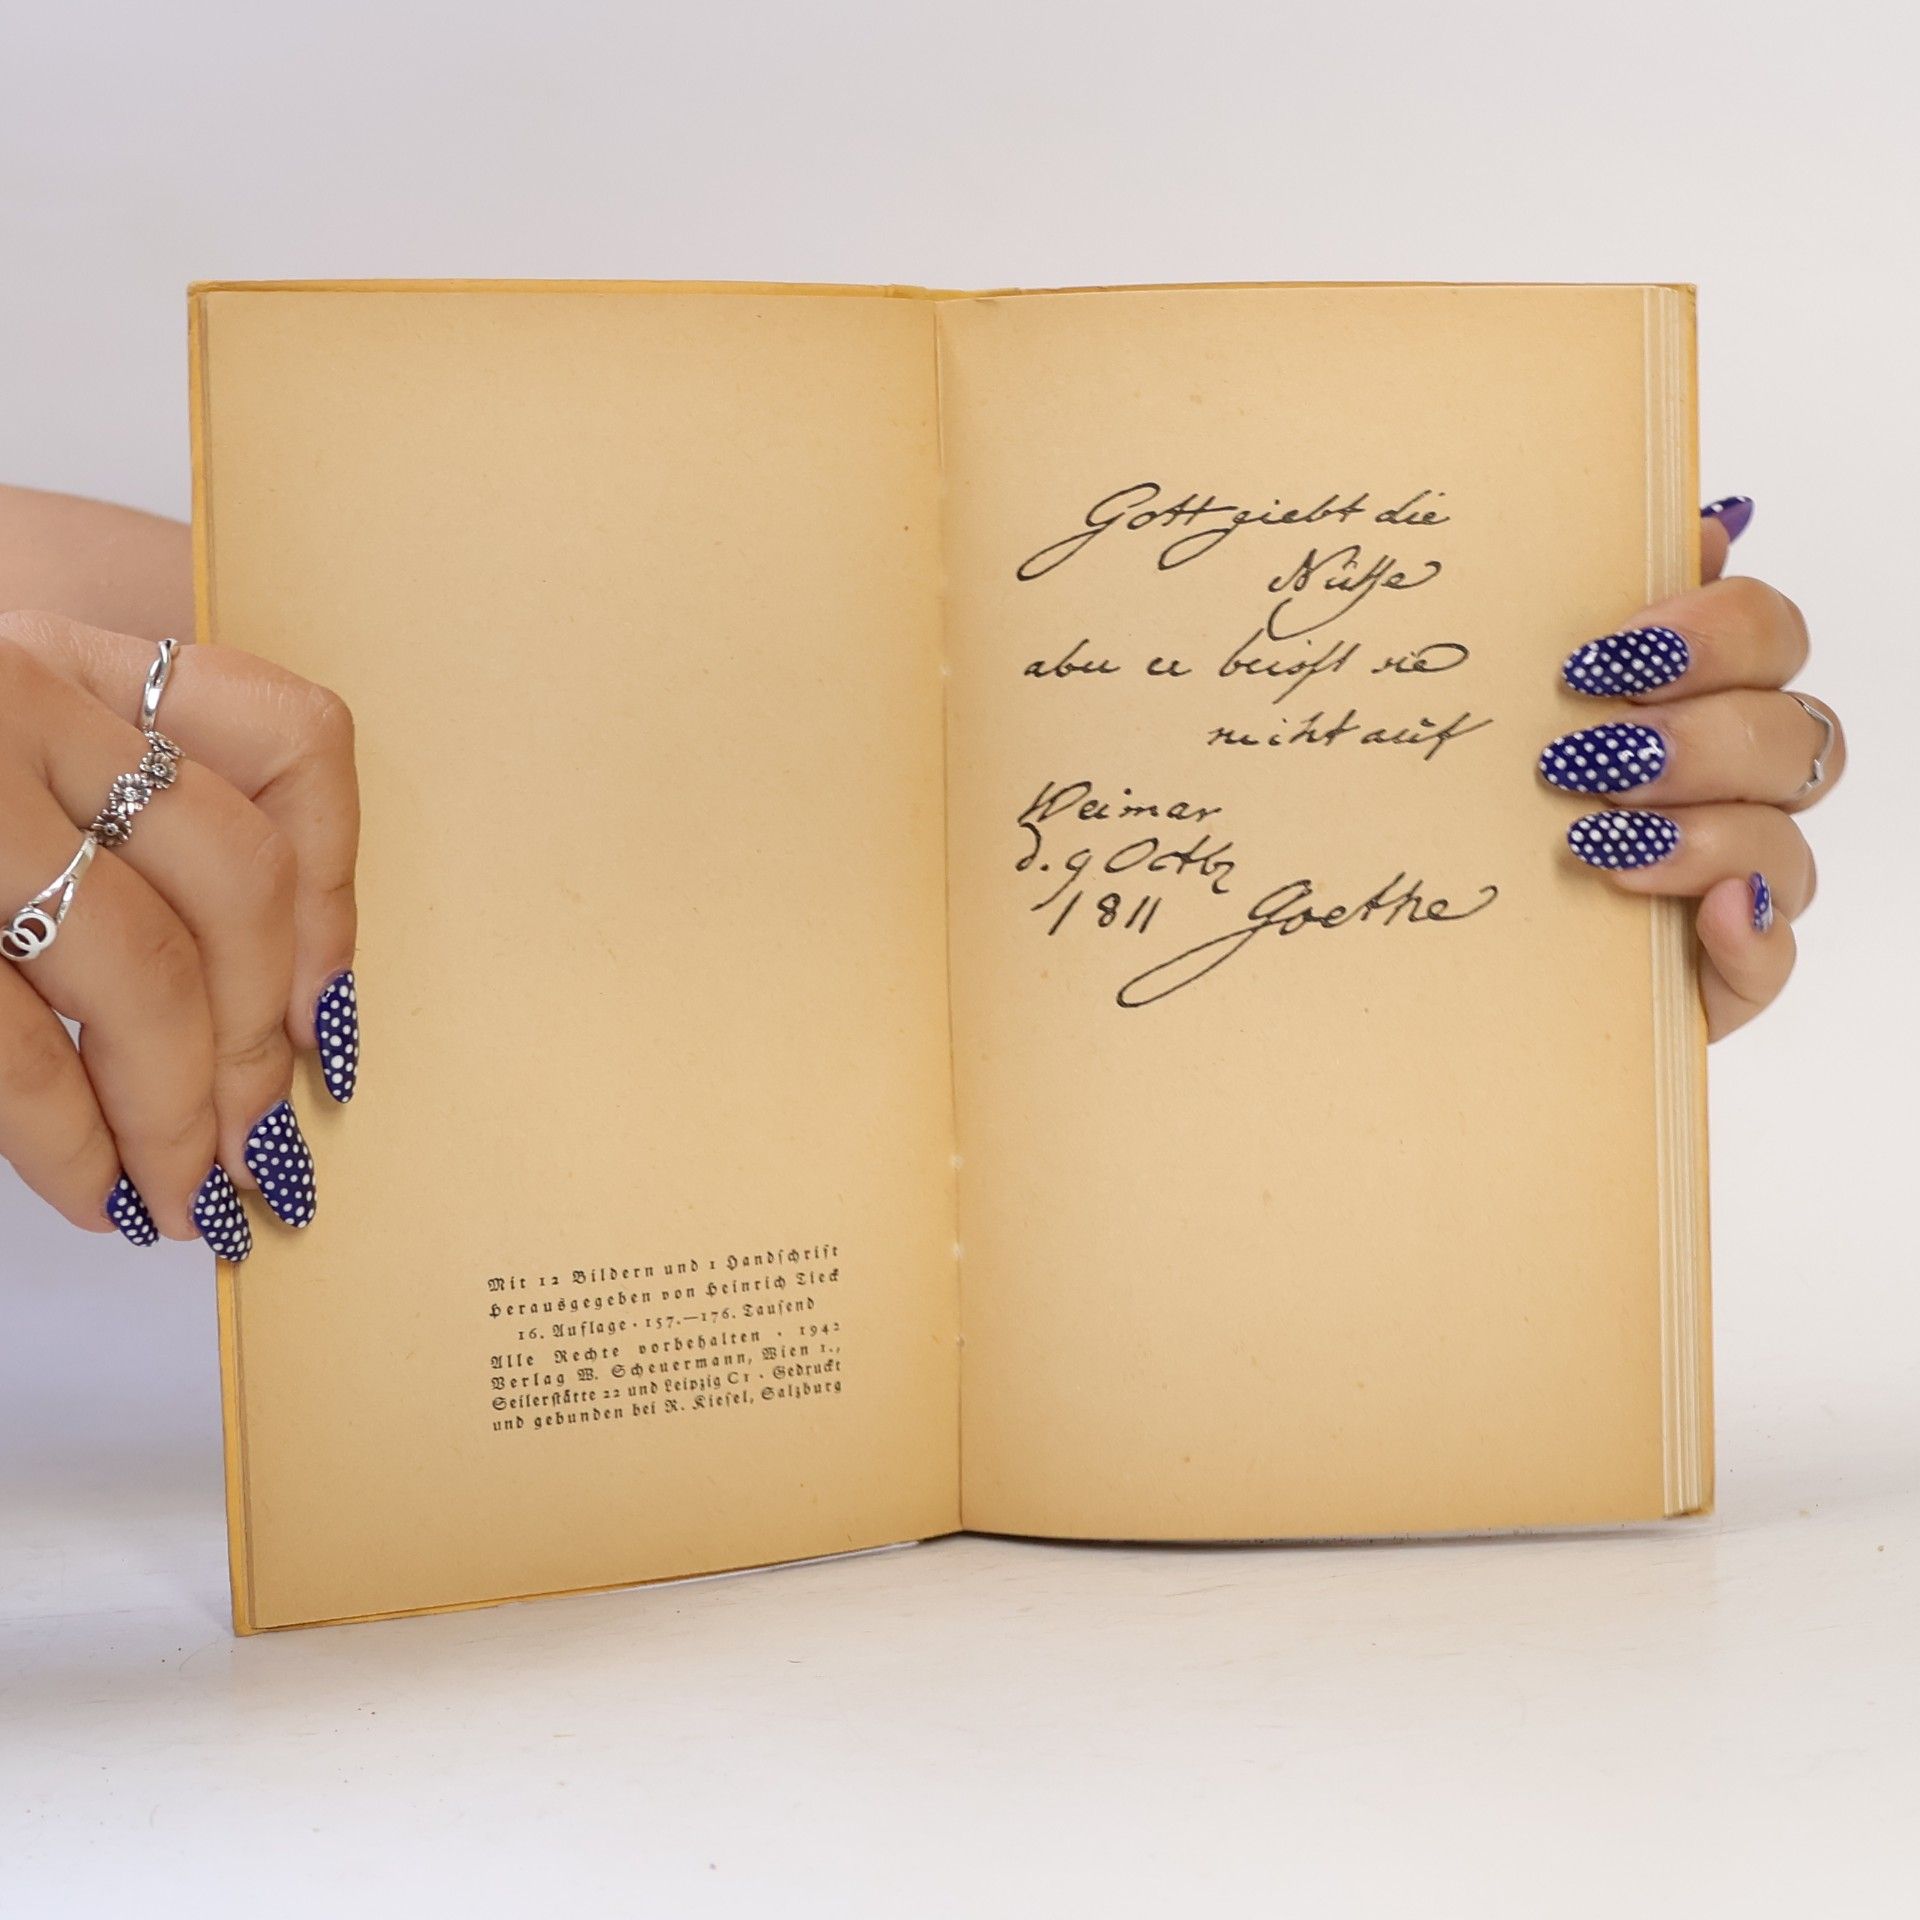 Mit 12 Bildern und 1 Handschrift
Herausgegeben von Heinrich Tieck
16. Auflage · 157.—176. Tausend
Alle Rechte vorbehalten · 1942
Verlag W. Scheuermann, Wien 1.,
Seilerstätte 22 und Leipzig C1 · Gedruckt
und gebunden bei R. Kiesel, Salzburg
Gott giebt die
Nüsse
aber er beisst sie
nicht auf
Weimar
d. 9 Octbr
1811 Goethe